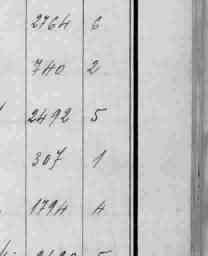 2764 6
740 2
2492 5
307 1
1794 4